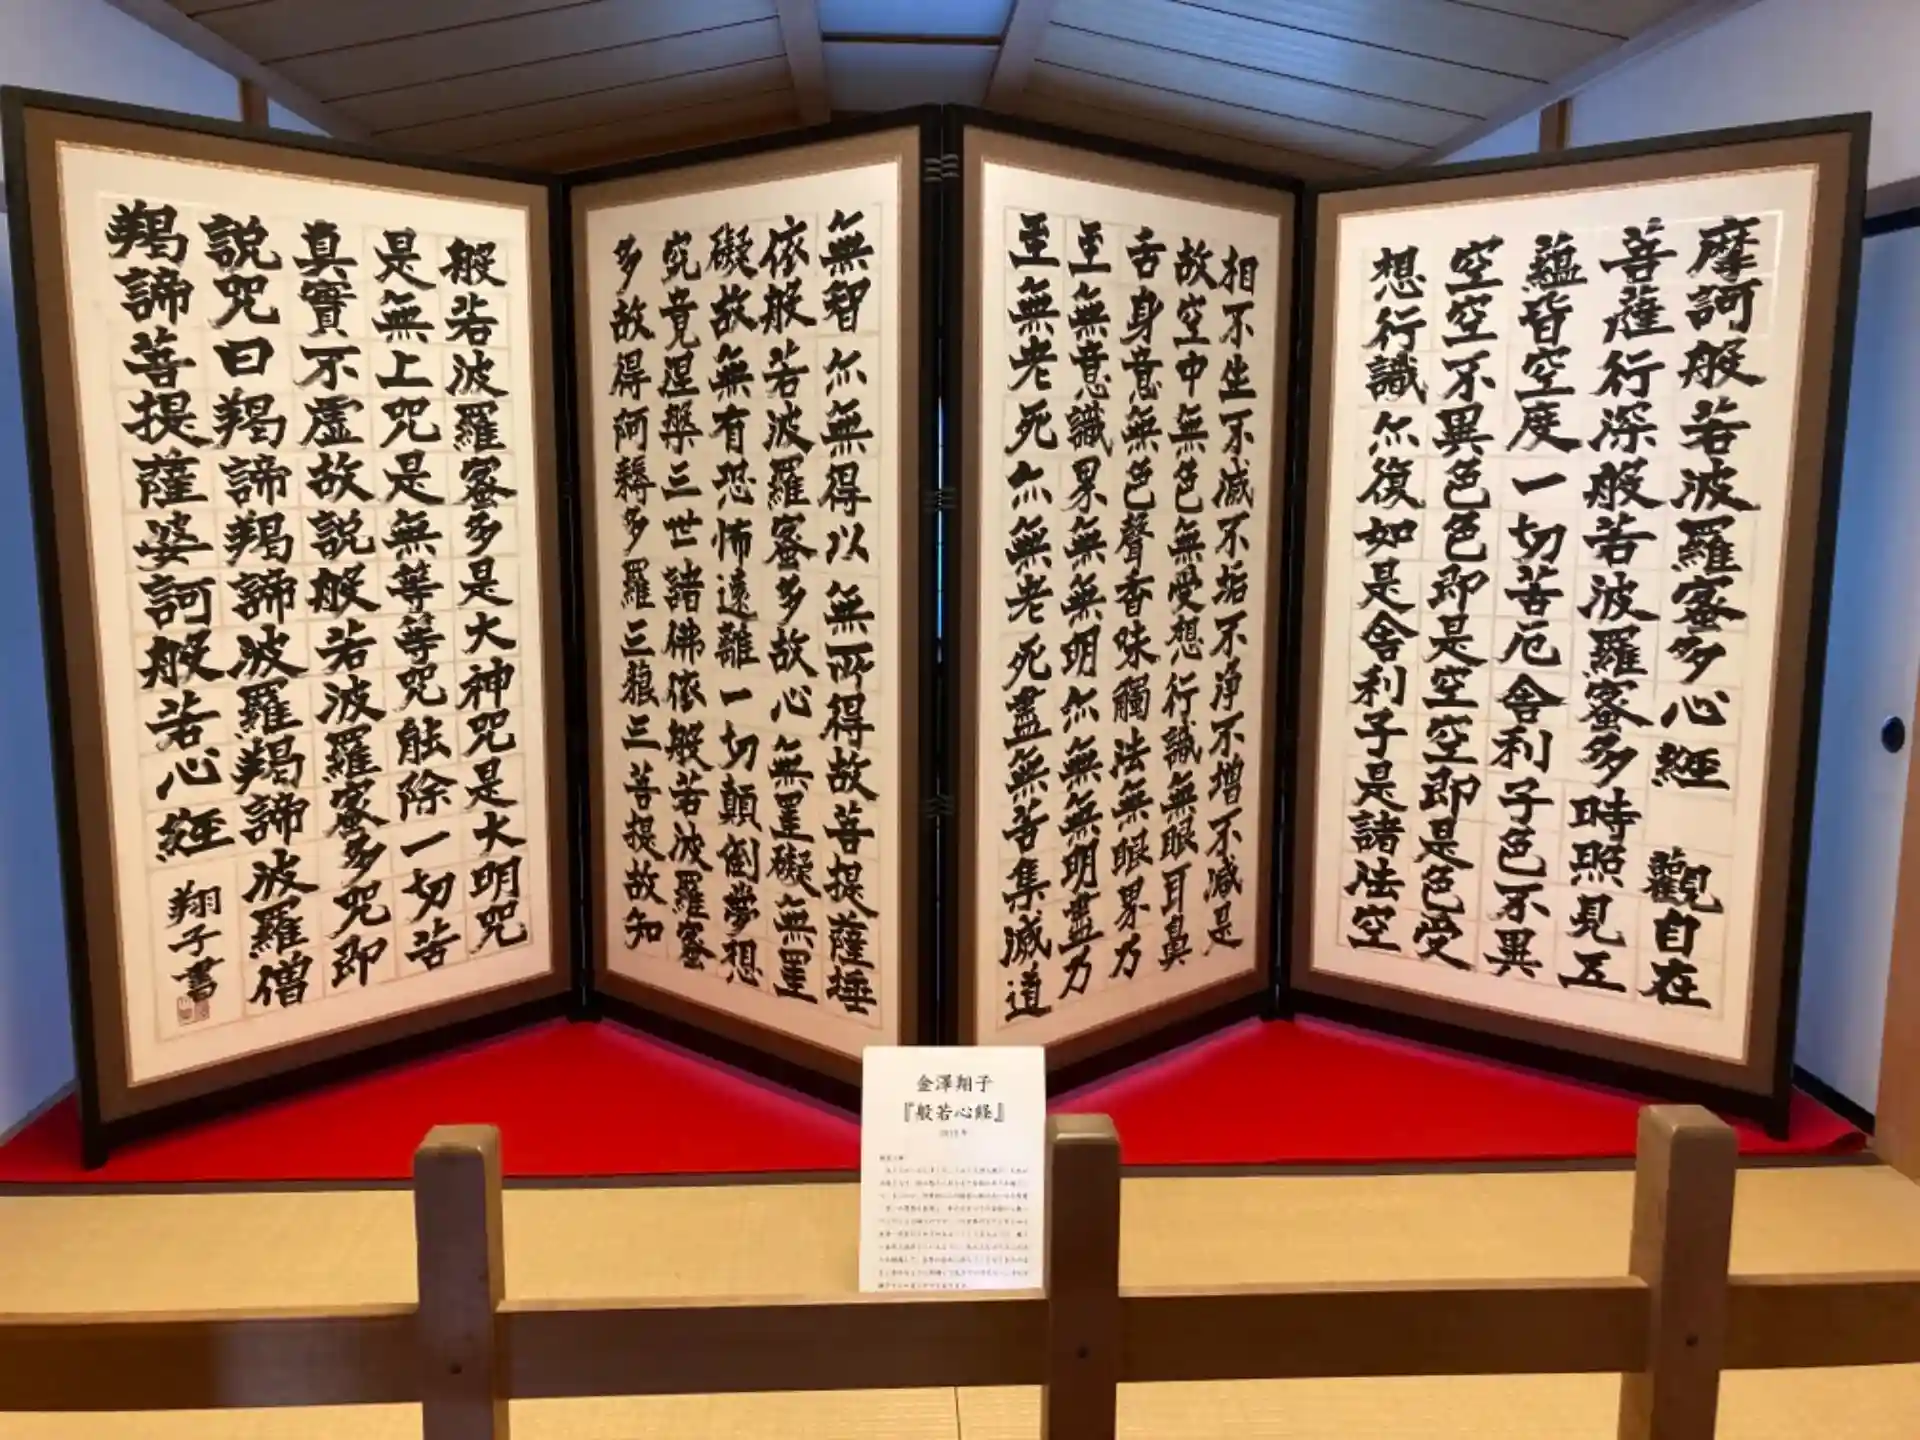 摩訶般若波羅蜜多心經 觀自在
菩薩行深般若波羅蜜多時照見五
蘊皆空度一切苦厄舍利子色不異
空空不異色色即是空空即是色受
想行識亦復如是舍利子是諸法空
相不生不滅不垢不浄不增不減是
故空中無色無受想行識無眼耳鼻
舌身意無色聲香味觸法無眼界乃
至無意識界無無明亦無無明盡乃
至無老死亦無老死盡無苦集滅道
無智亦無得以無所得故菩提薩埵
依般若波羅蜜多故心無罣礙無罣
礙故無有恐怖遠離一切顛倒夢想
究竟涅槃三世諸佛依般若波羅蜜
多故得阿耨多羅三藐三菩提故知
般若波羅蜜多是大神咒是大明咒
是無上咒是無等等咒能除一切苦
真實不虛故説般若波羅蜜多咒即
説咒曰羯諦羯諦波羅羯諦波羅僧
羯諦菩提薩婆訶般若心經
翔子書
金澤翔子
『般若心経』